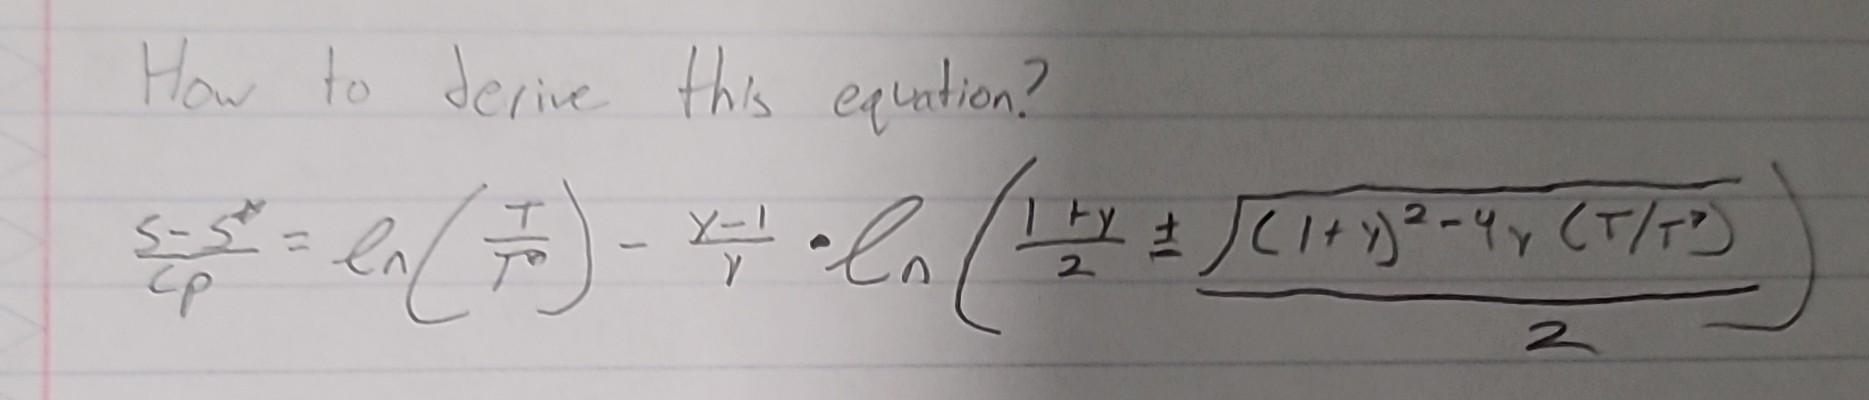 How to derive this equation?
(s-s*)/cp = ln(T/T*) - (γ-1)/γ • ln((1+γ)/2 ± √((1+γ)²-4γ(T/T*))/2)